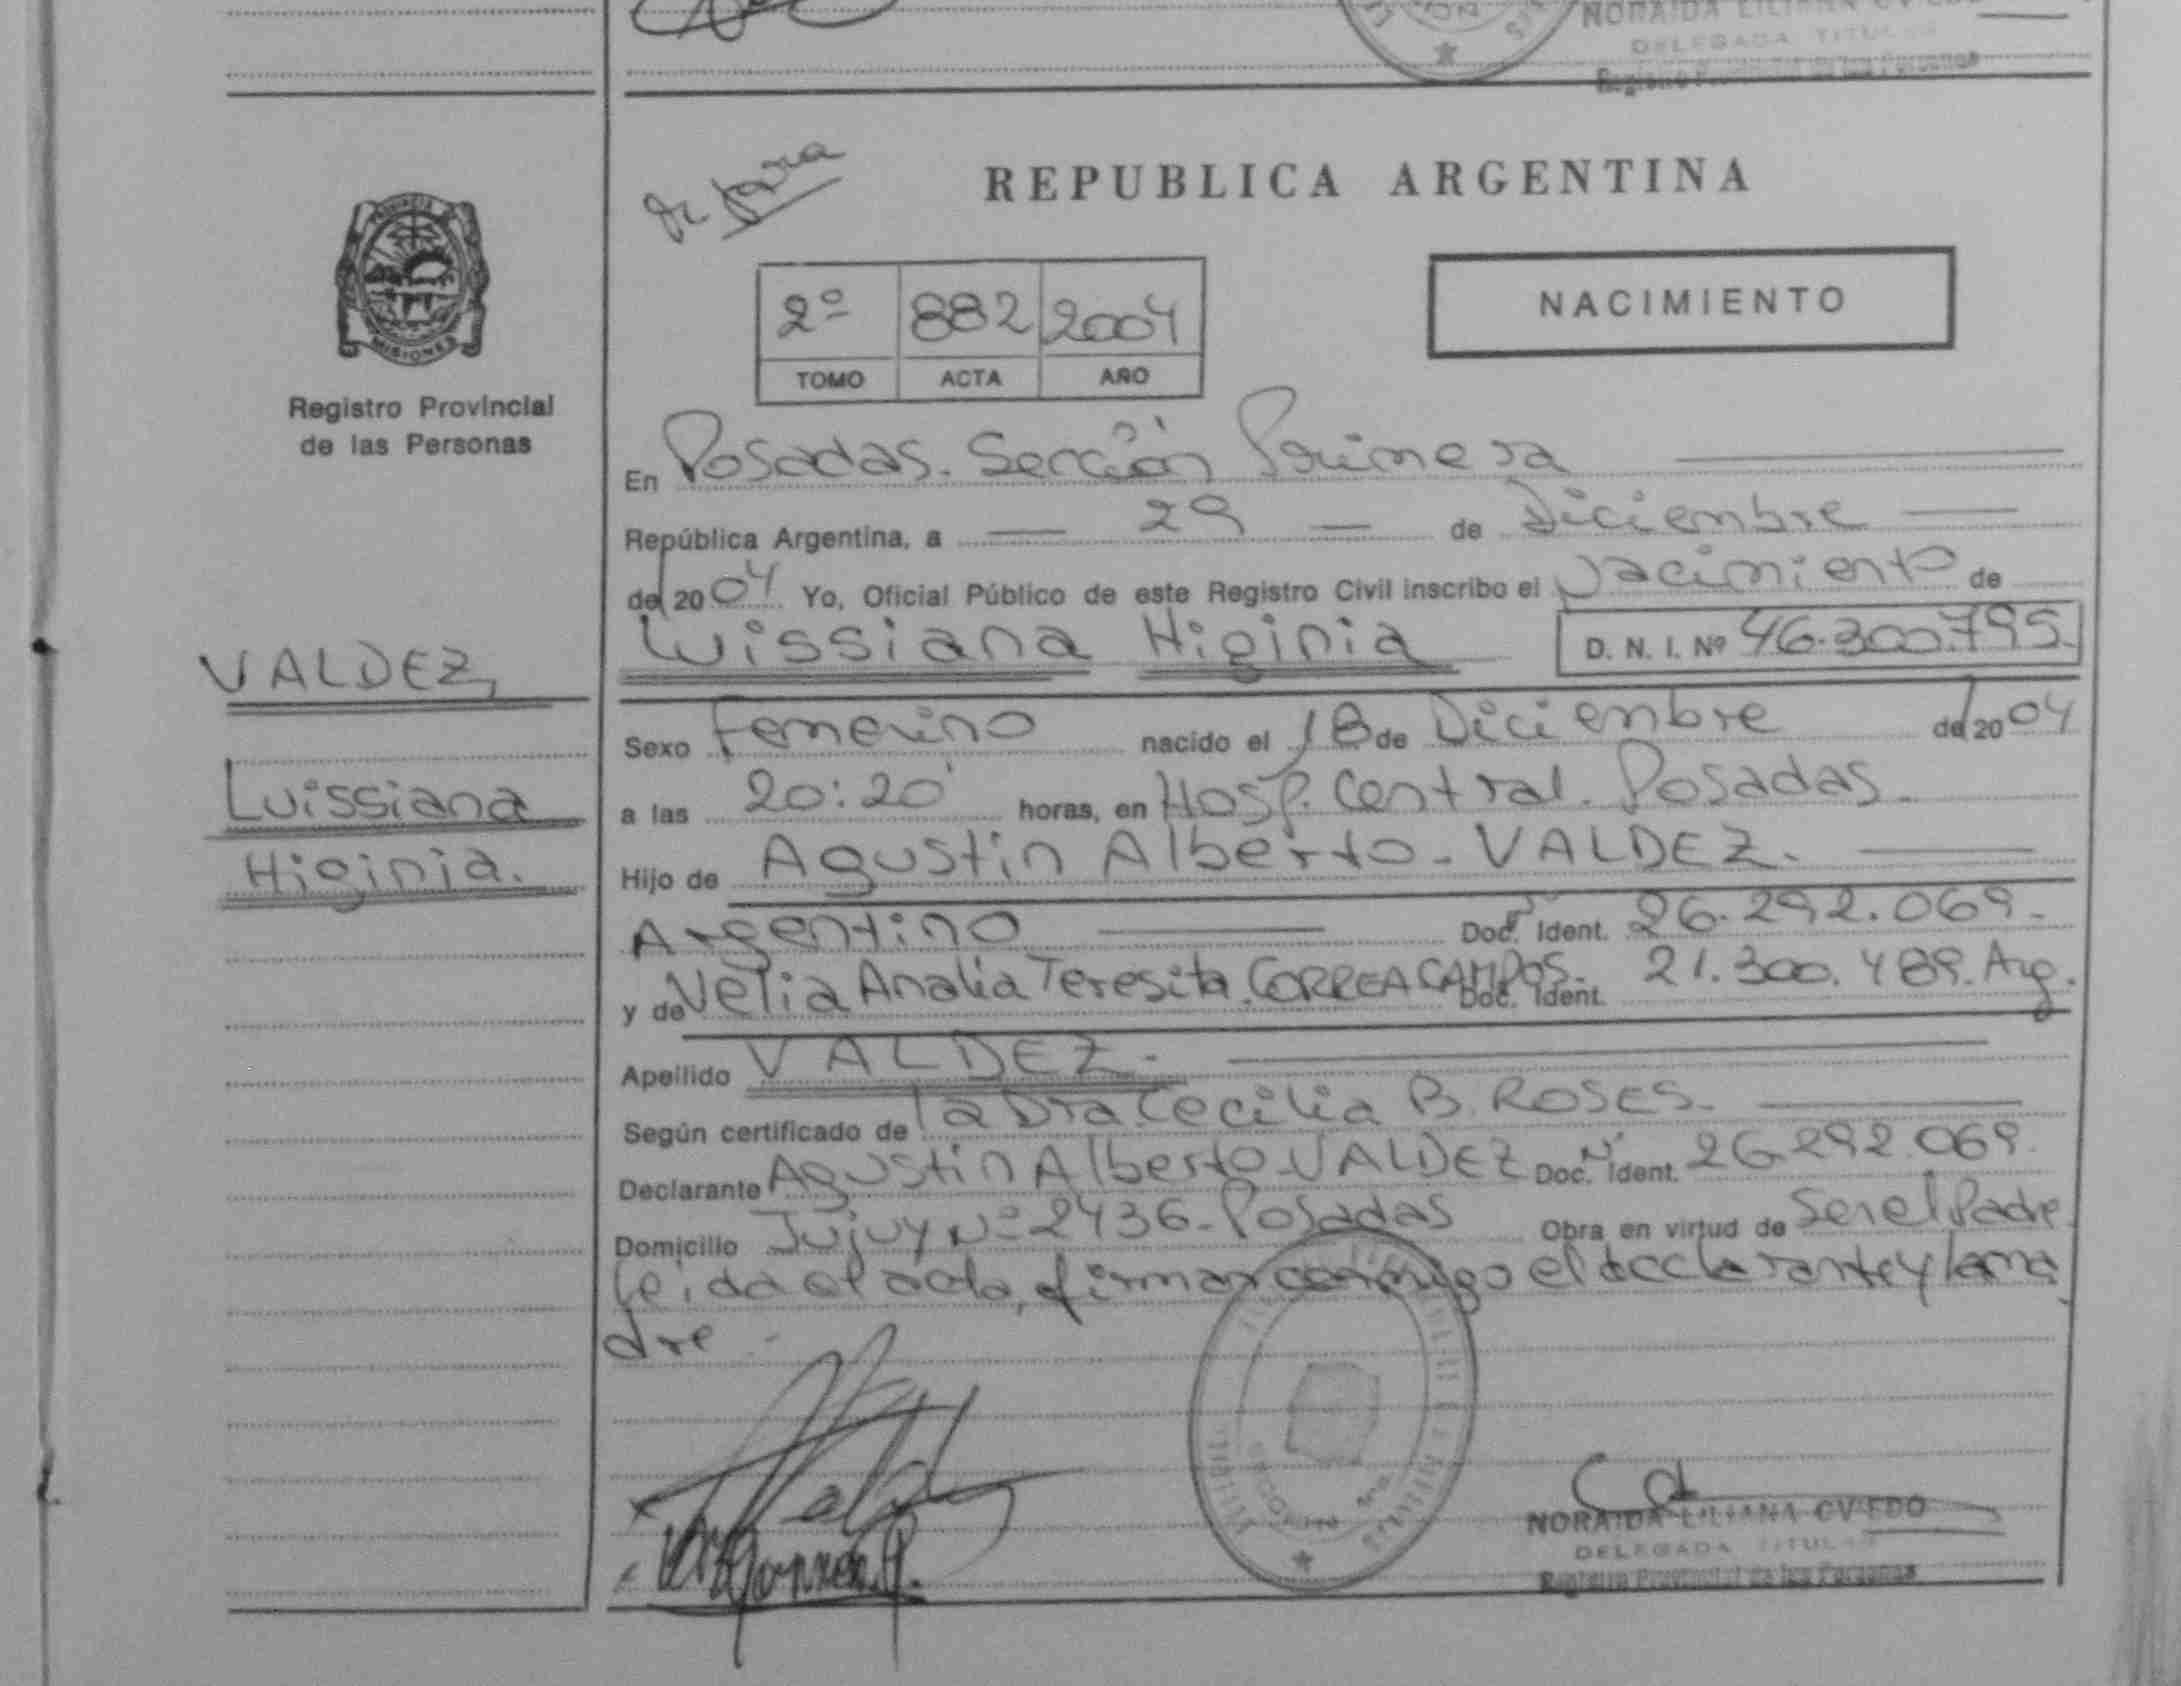 NORAIDA LILIANA OVIEDO
DELEGADA TITULAR
Registro Provincial de las Personas
REPUBLICA ARGENTINA
NACIMIENTO
2º 882 2004
TOMO ACTA AÑO
MISIONES
Registro Provincial
de las Personas
VALDEZ,
Luissiana
Higinia.
En Posadas. Sección Primera
República Argentina, a 29 de Diciembre
del 2004 Yo, Oficial Público de este Registro Civil inscribo el Nacimiento de
Luissiana Higinia D. N. I. Nº 46.300.795.
Sexo Femenino nacido el 18 de Diciembre del 2004
a las 20:20 horas, en Hosp. Central. Posadas.
Hijo de Agustin Alberto - VALDEZ.
Argentino Doc. Ident. 26.292.069.
y de Velia Analia Teresita CORREA CAMPOS. Doc. Ident. 21.300.489. Arg.
Apellido VALDEZ.
Según certificado de la Dra. Cecilia B. ROSES.
Declarante Agustin Alberto VALDEZ Doc. Ident. 26.292.069.
Domicilio Jujuy Nº 2436 - Posadas Obra en virtud de Ser el Padre
leida el acta, firman conmigo el declarante y la ma
dre.-
NORAIDA LILIANA OVIEDO
DELEGADA TITULAR
Registro Provincial de las Personas